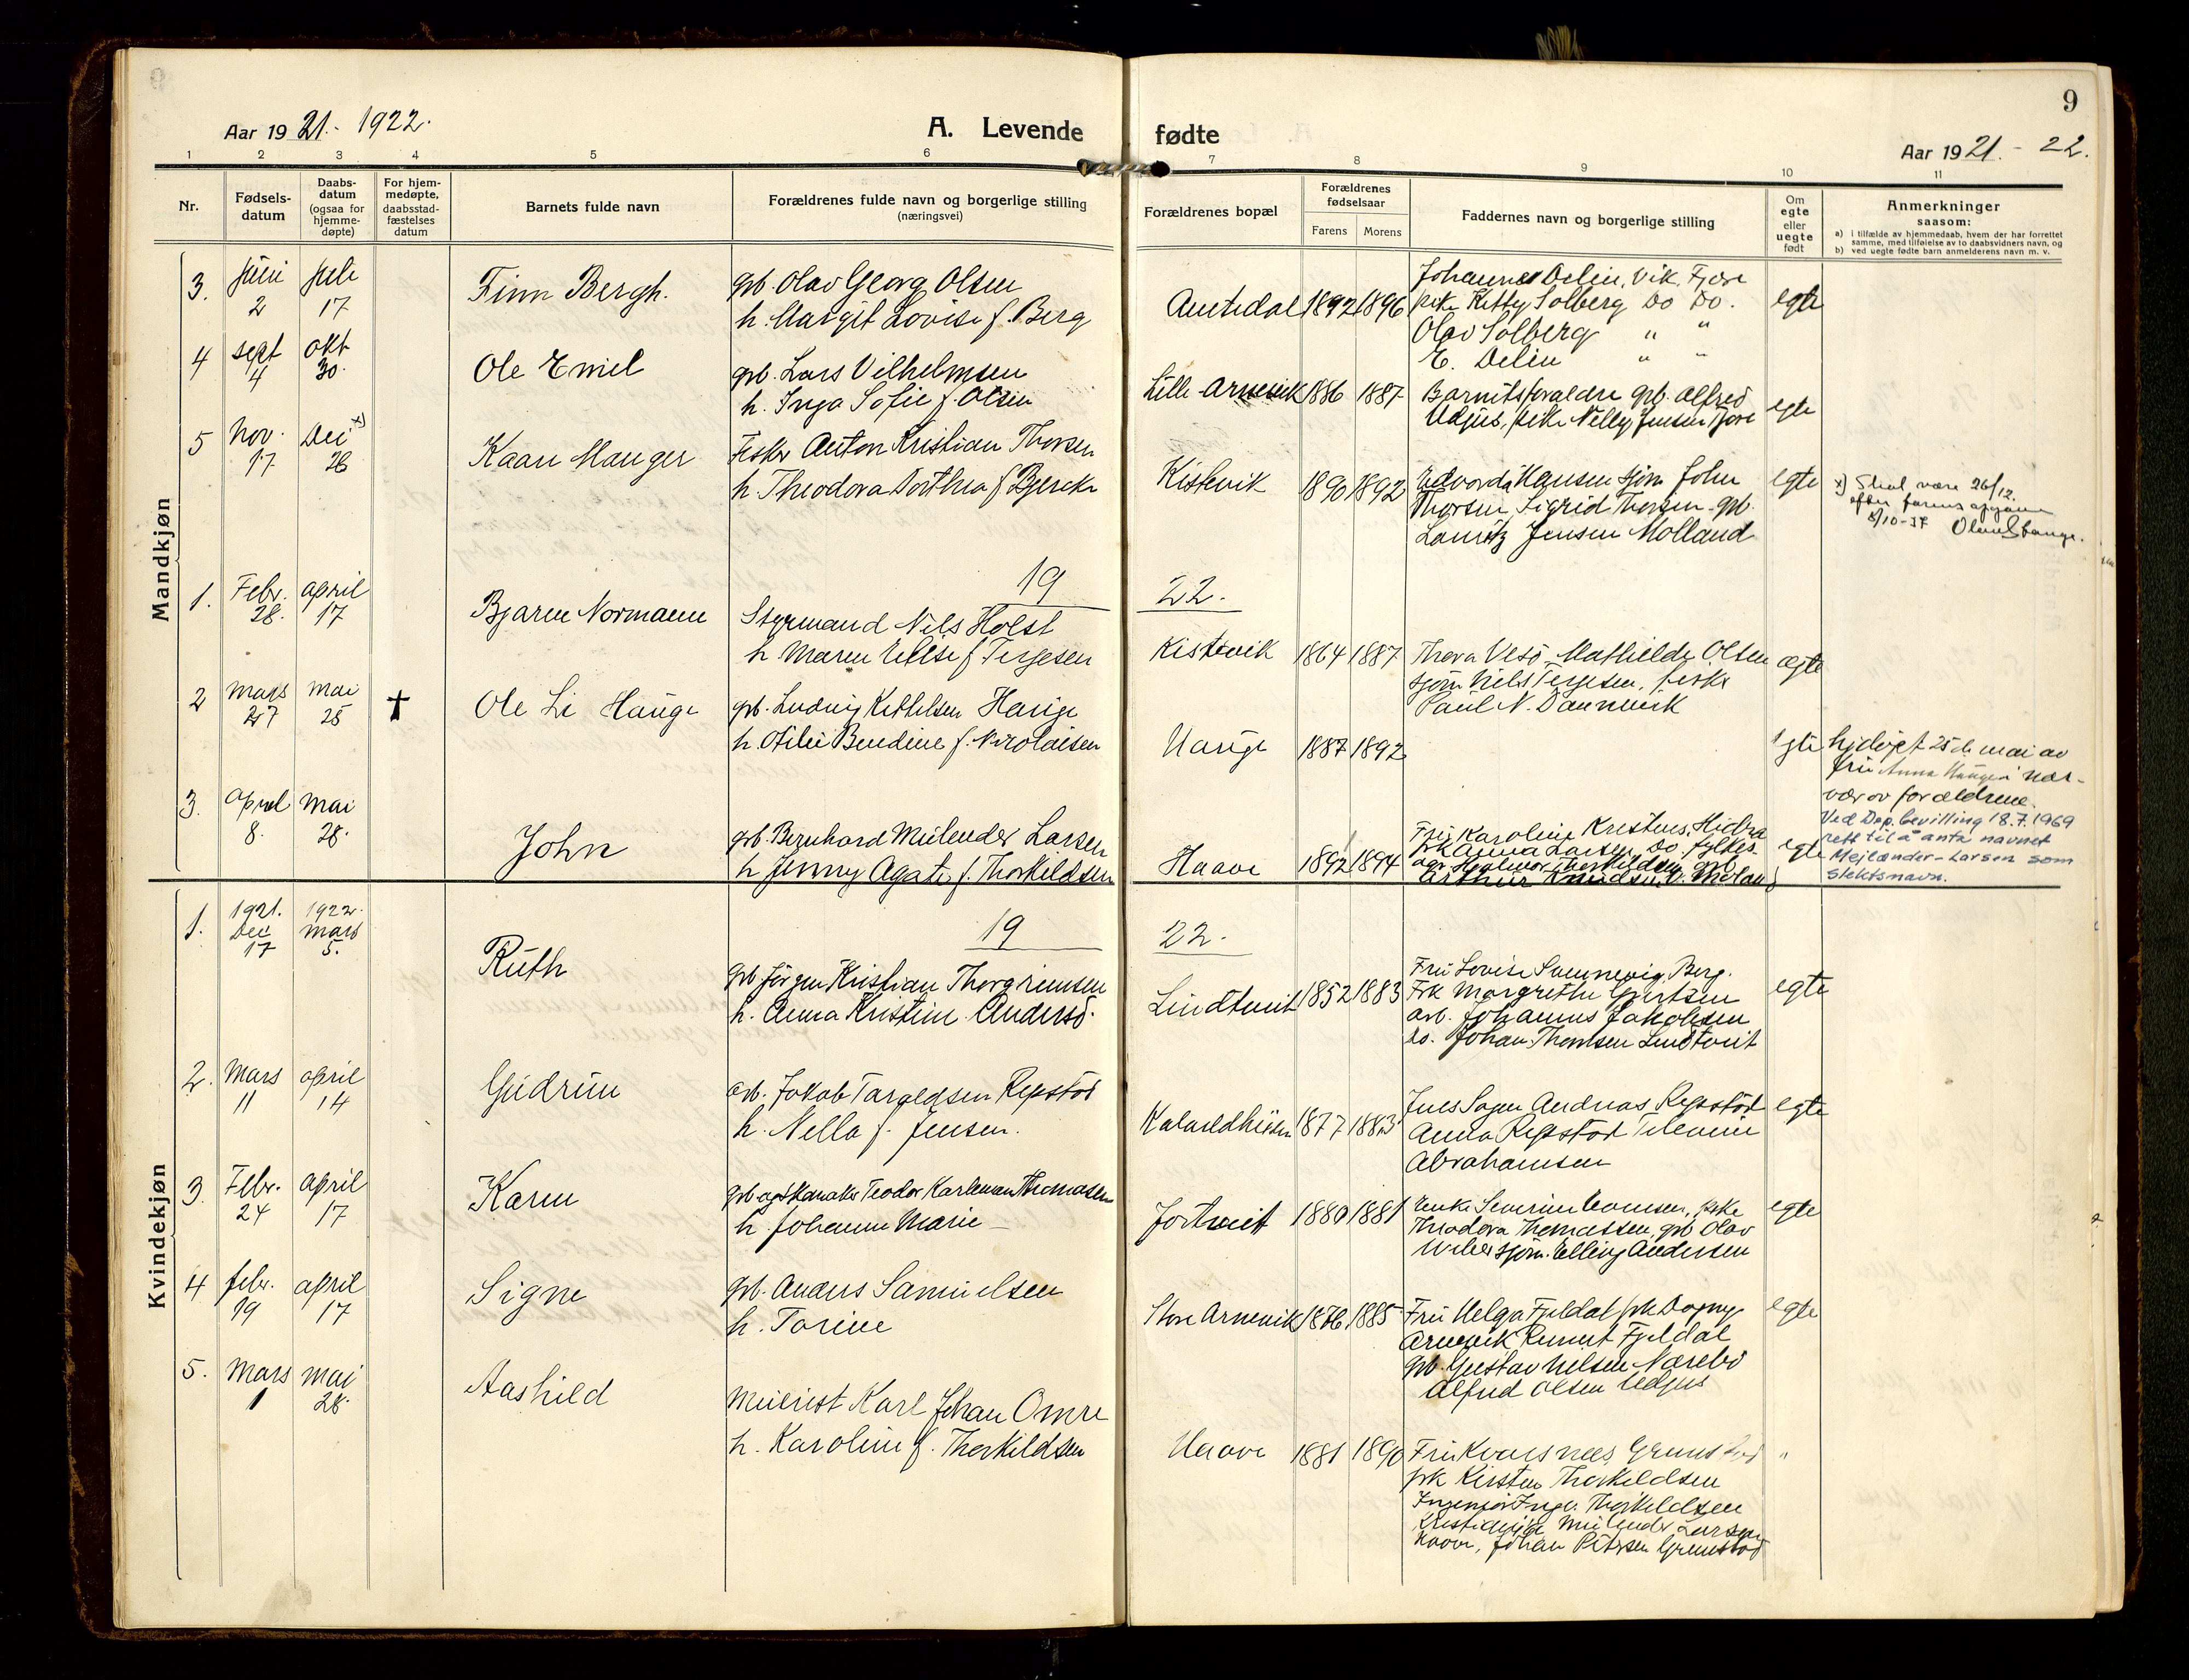 9
Aar 1921.- 1922.
A. Levende fødte
Aar 1921.- 22.
1 2 3 4 5 6 7 8 9 10 11
Nr.
Fødsels-
datum
Daabs-
datum
(ogsaa for
hjemme-
døpte)
For hjem-
medøpte,
daabsstad-
fæstelses
datum
Barnets fulde navn
Forældrenes fulde navn og borgerlige stilling
(næringsvei)
Forældrenes bopæl
Forældrenes
fødselsaar
Farens Morens
Faddernes navn og borgerlige stilling
Om
egte
eller
uegte
født
Anmerkninger
saasom:
a) i tilfælde av hjemmedaab, hvem der har forrettet
samme, med tilføielse av to daabsvidners navn, og
b) ved uegte fødte barn anmelderens navn m. v.
Mandkjøn
3. juni juli
2 17
Finn Bergh.
grb. Olav Georg Olsen
h. Margit Lovise f. Berg
1892 1896
Johannes Delin, Vik, Fjære
pike Kitty Solberg Do Do.
Olav Solberg " "
E. Delin " "
egte
4 sept okt
4 30.
Ole Emil
grb. Lars Vilhelmsen
h. Inga Sofie f. Olsen
Lille Arnevik 1886 1887
Barnets foraldre grb. Alfred
Udjus, pike Nelly Jensen Fjære
egte
5 Nov. Dec x)
17 26
Kaare Manger
Fisker Anton Kristian Thorsen
h. Theodora Dorthea f Bjerck
Kistevik 1890 1892
Edvarda Hansen sjøm John
Thorsen, Sigrid Thorsen, grb.
Lauritz Jensen Molland
egte
x) Skal være 26/12.
efter farens
8/10-37 Olav Stange.
19 22.
1. Febr. april
28. 17
Bjarne Normann
Styrmand Nils Holst
h. Maren Elise f Terjesen
Kistevik 1864 1887
Thora Vesö, Mathilde Olsen
sjøm Nils Terjesen, fisker
Paul N. Dannevik
egte
2 mars mai
27 25 †
Ole Li Hauge
grb. Ludvig Kittelsen Hauge
h. Otilie Bendine f. Nicolaisen
Hauge 1887 1892
egte
hjdøpt 25de mai av
fru Anna Hauge i nær-
vær av forældrene.
3. april mai
8. 28.
John
grb. Bernhard Meilender Larsen
h Jenny Agate f. Thorkildsen
Haave 1892 1894
Fru Karoline
frk Anna Larsen Do,
Hjalmar Thorkildsen, grb
Arthur Knudsen
egte
Ved Dep. bevilling 18.7.1969
rett til å anta navnet
Mejlænder-Larsen som
slektsnavn.
Kvindekjøn
19 22.
1. 1921. 1922.
Dec mars
17 5.
Ruth
grb. Jørgen Kristian Thorgrimsen
h. Anna Kristine Andersd.
Lindtveit 1852 1883
Fru Lovise Sannevig, Berg.
Frk Margrethe Gjertsen
arb. Johannes Jakobsen
do. Johan Thomsen Lindtveit
egte
2. Mars april
11 14
Gudrun
arb. Jakob Taraldsen Repstad
h. Nella f. Jensen.
1877 1883
Andreas Repstad
Anna Repstad
Abrahamsen
egte
3 Febr. april
24 17
Karen
grb. og skomaker Teodor Karleman Thomasen
h. Johanne Marie —
Jortveit 1880 1881
Enke Severine Evensen, pike
Theodora Thomassen, grb Olav
sjøm. Elling Andersen
egte
4 febr. april
19 17
Signe
grb. Anders Samuelsen
h. Torine
Store Arnevik 1876 1885
Fru Helga Fjeldal frk Dagny
Arnevik Fjeldal
grb. Gustav Nilsen Nærebö
Alfred Olsen Udjus
egte
5. Mars mai
1 28.
Aashild
Meierist Karl Johan Omre
h. Karoline f. Thorkildsen
Haave 1881 1890
Fru Kvarsnes Grimstad
frk Kirsten Thorkildsen
Ingeniør Ingv. Thorkildsen
Kristiania Meilender Larsen
Haave, Johan Petersen Grimstad
"